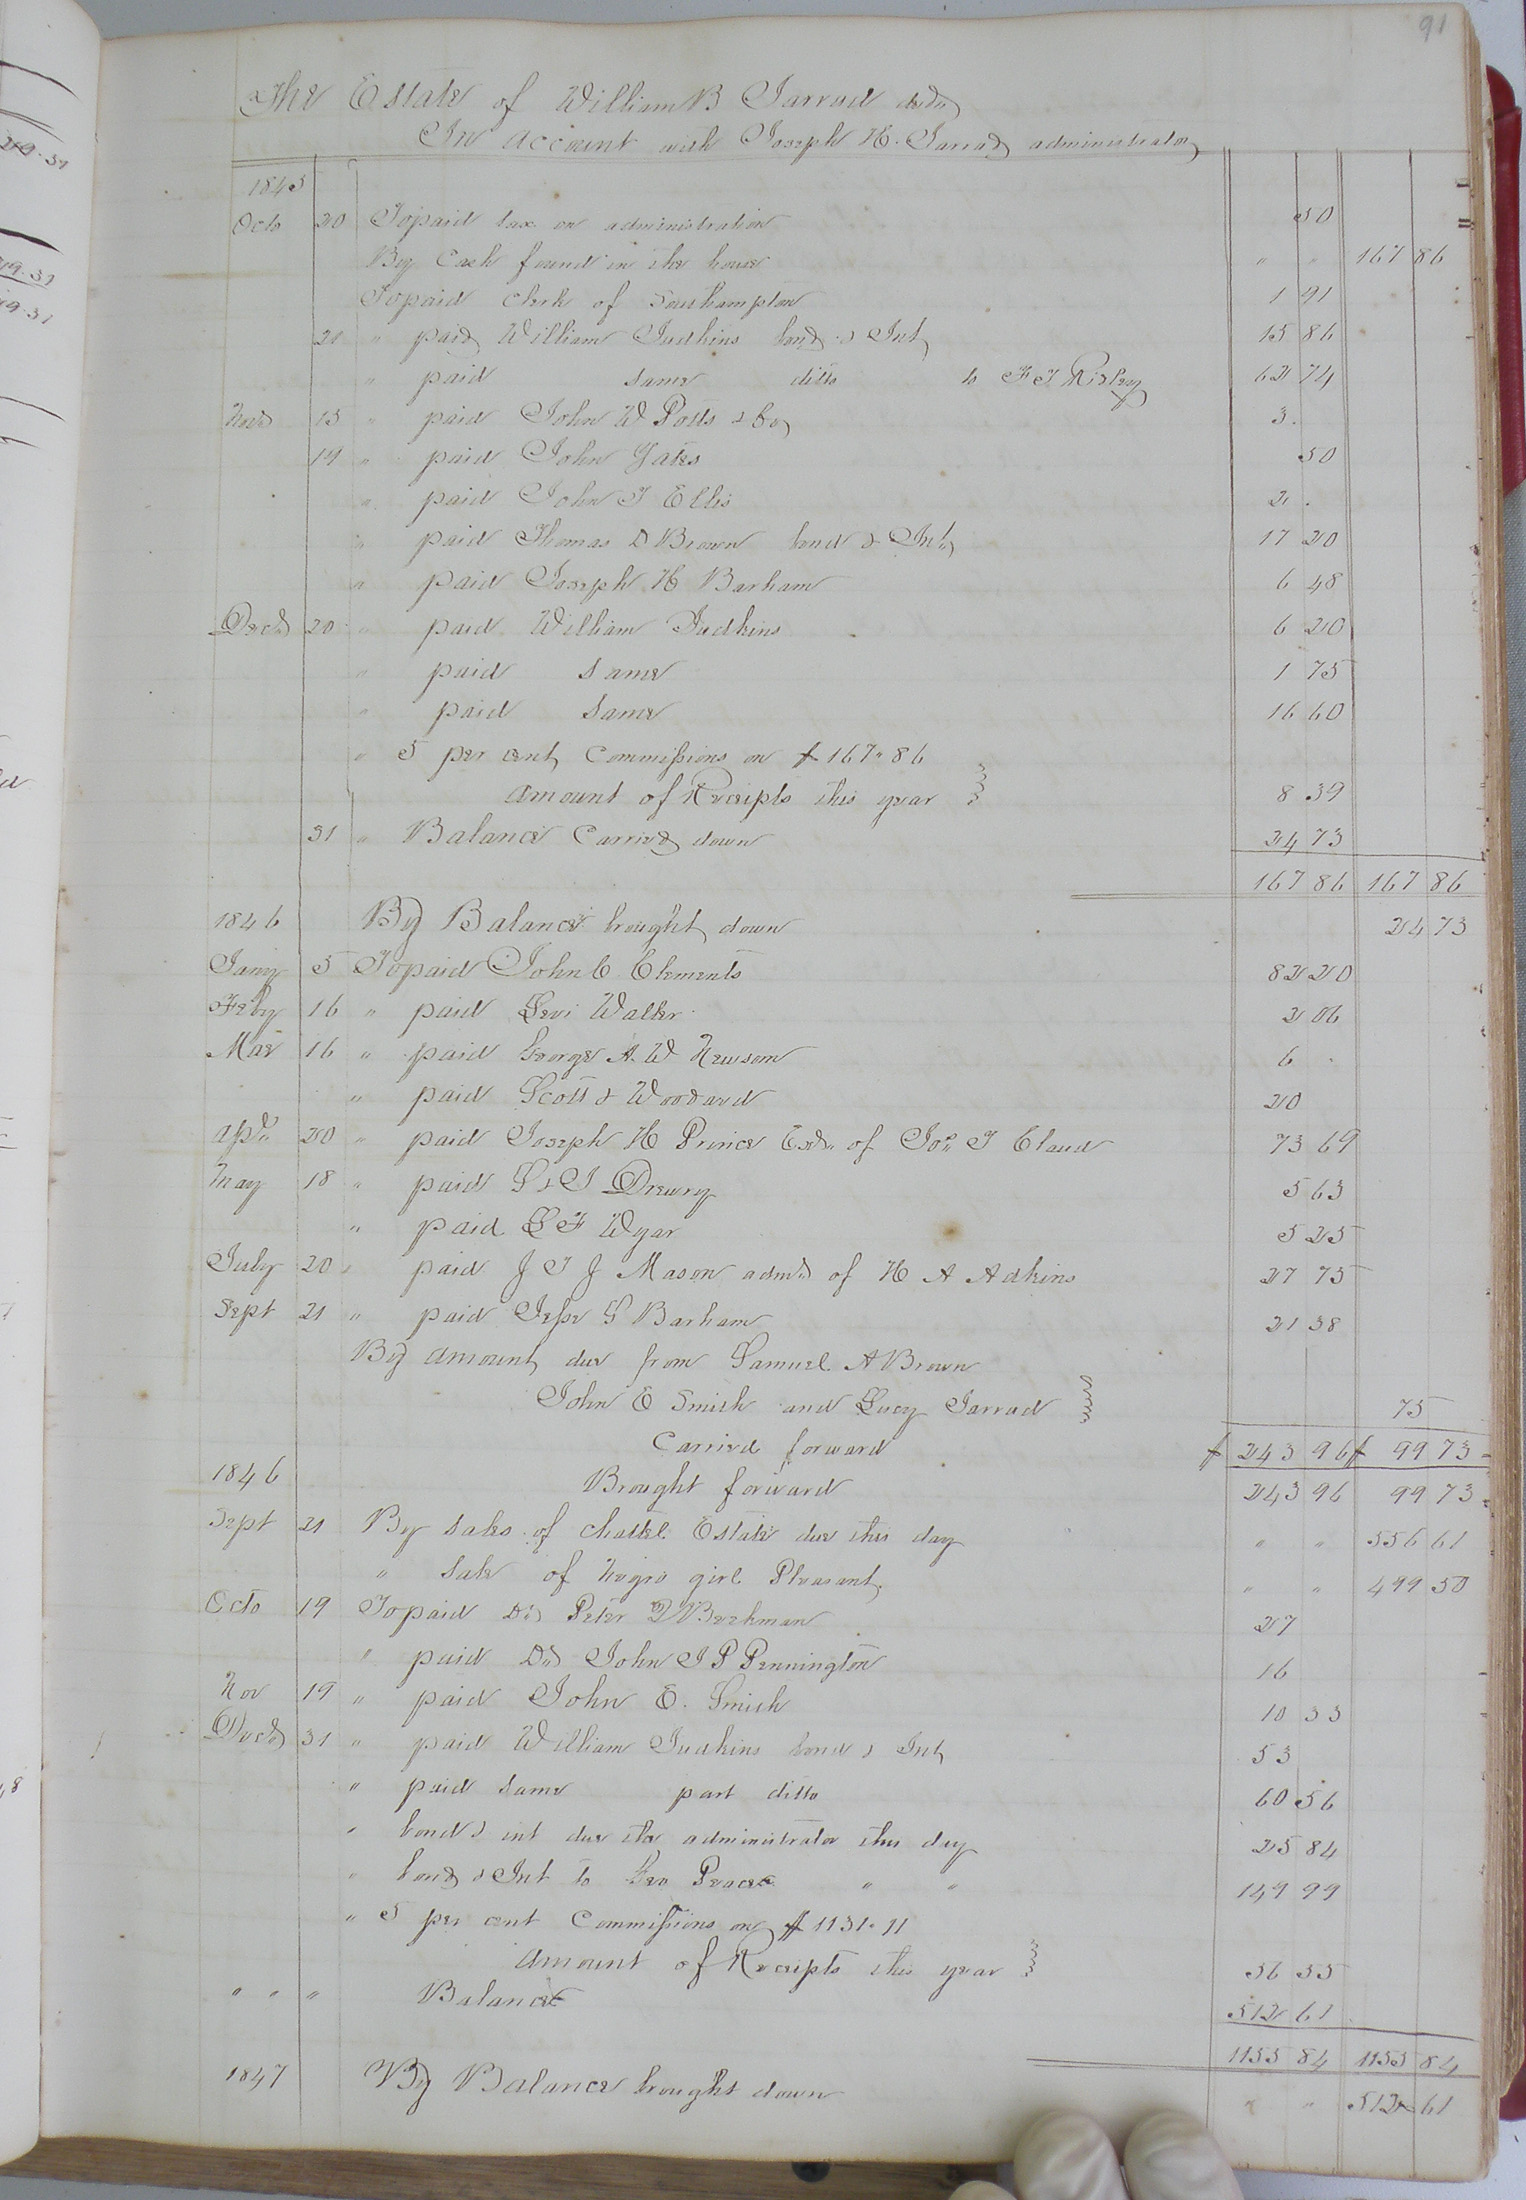 91
The Estate of William B Jarrad decd
In account with Joseph H. Jarrad administrator
1845
Octo 20 To paid tax on administration 50
By Cash found in the house " " 167 86
To paid Clerk of Southampton 1 91
21 " paid William Judkins bond & Int 15 86
" paid same ditto to F T Ridley 62 74
Novr 15 " paid John W Potts & Co 3.
19 " paid John Yates 50
" paid John T Ellis 2.
" paid Thomas D Brown bond & Int 17 20
" paid Joseph H Barham 6 48
Decr 20 " paid William Judkins 6 20
" paid same 1 75
" paid same 16 60
" 5 per cent Commissions on $167.86
amount of Receipts this year 8 39
31 " Balance Carried down 24 73
167 86 167 86
1846 By Balance brought down 24 73
Jany 5 To paid John C Clements 82 20
Feby 16 " paid Levi Waller 2 06
Mar 16 " paid George A. W Newsom 6 .
" paid Scott & Woodard 20
Apl 20 " paid Joseph H Prince Exr of Jos T Claud 73 69
May 18 " paid S & J Drewry 5 63
" paid L F Wgar 5 25
July 20 " paid J T J Mason admr of H A Adkins 27 75
Sept 21 " paid Jesse S Barham 21 38
By amount due from Samuel A Brown
John E Smith and Lucy Jarrad 75
Carried forward $ 243 96 $ 99 73
1846 Brought forward 243 96 99 73
Sept 21 By sales of Chattel Estate due this day " " 556 61
" Sale of Negro girl Pleasant " " 499 50
Octo 19 To paid Dr Peter D Beekman 27
" paid Dr John J P Pennington 16
Nov 19 " paid John E. Smith 10 33
Decr 31 " paid William Judkins bond & Int 53
" paid same part ditto 60 56
" bond & int due the administrator this day 25 84
" bond & Int to Geo Peace " " 149 99
" 5 per cent Commissions on $1131.11
amount of Receipts this year 56 55
" " " Balance 512 61
1155 84 1155 84
1847 By Balance brought down " " 512 61